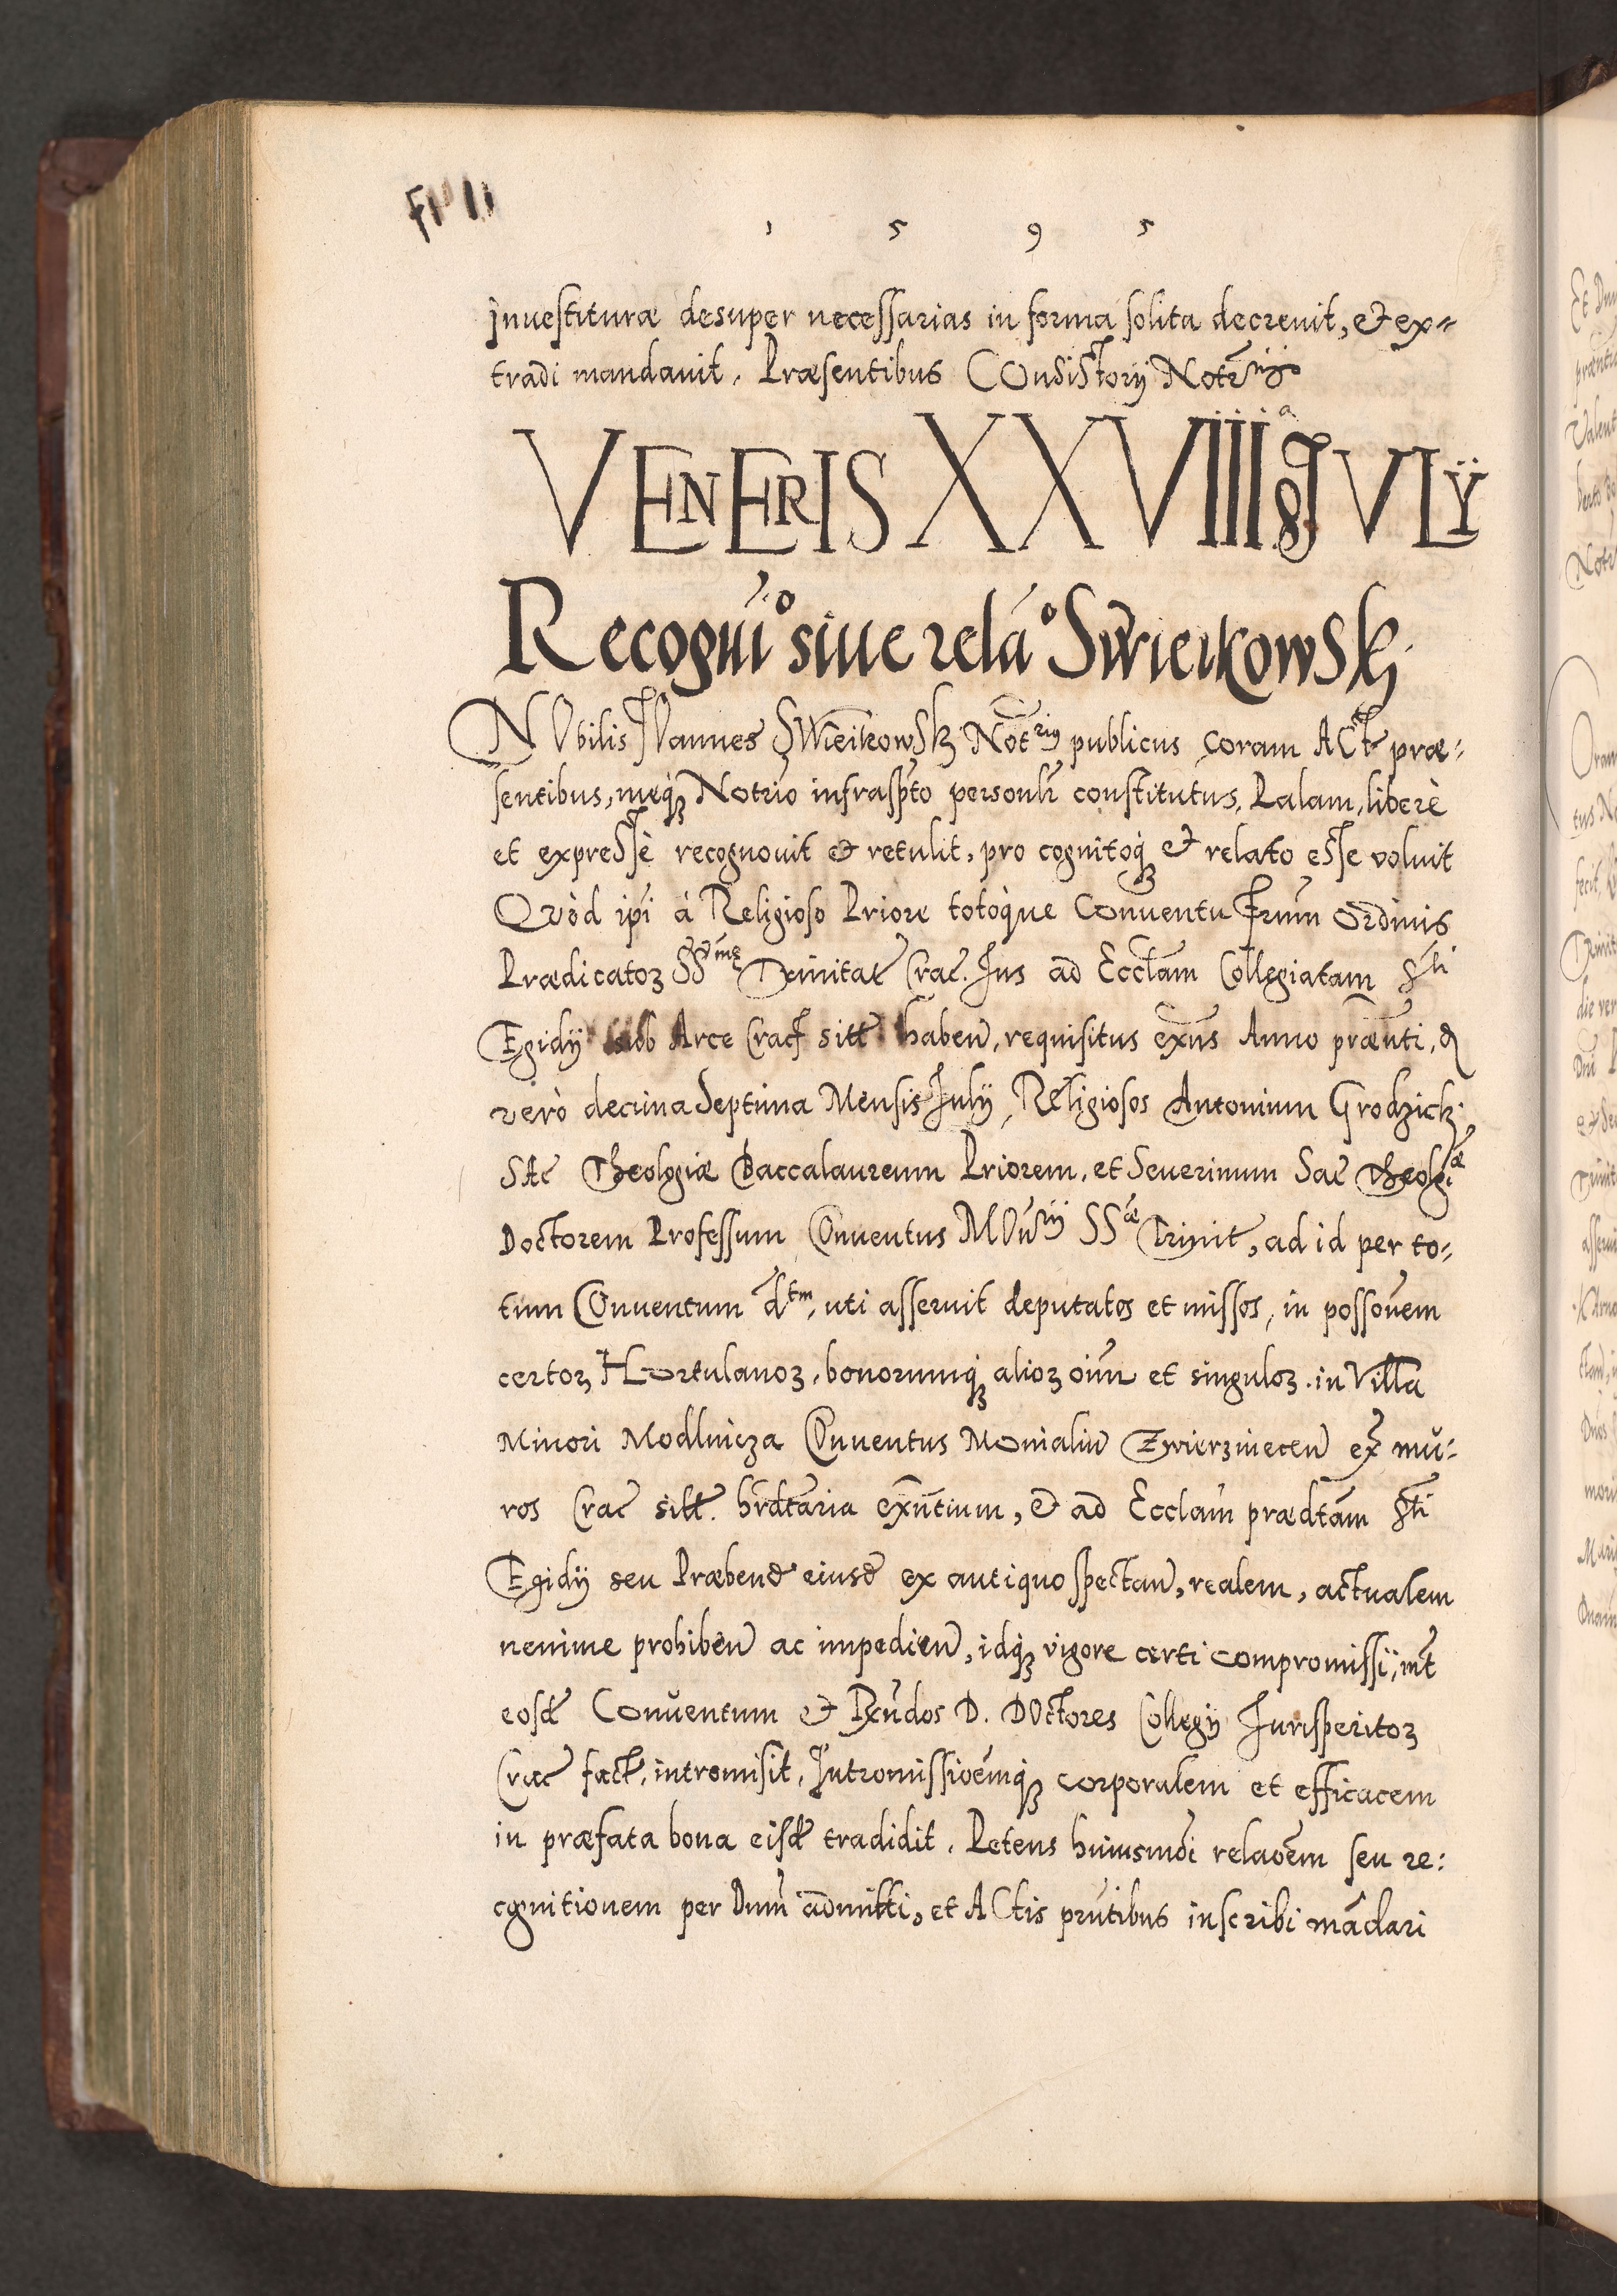 1 5 9 5
Inuestituræ desuper necessarias in forma solita decreuit, et ex=
tradi mandauit. Præsentibus COnsistorij Notr̄ijs
VENERIS XXVIIIIa JVLÿ
Recogni̅o siue rela̅o Swieikowskj
NObilis IOannes SWieikowskj Not̄rius publicus coram ACt̄ præ=
sentibus, meq́ꝫ Notr̄io infrasp̄to personlr̄ constitutus, Palam, liberè
et expressè recognouit et retulit, pro cognitoq́ꝫ et relato esse voluit
Quòd ip̄i à Religioso Priore totòque Conuentu Frum̄ Ordinis
Prædicatoꝝ SSmę Trinitat̄ Crac̄. Jus ad Eccl̄am Collegiatam Sti
Egidÿ sub Arce Crac̄ sitt̄ haben̄, requisitus exn̄s Anno præn̄ti, d
verò decima Septima Mensis Julÿ, Religiosos Antonium Grodzickj
SAc̄ Theologiæ Baccalaureum Priorem, et Seuerinum Sac̄ Theolgiæ
Doctorem Professum COnuentus MOnr̄ij SSæ Trinit̄, ad id per to=
tum COnuentum d̄tm, uti asseruit deputatos et missos, in posso̅nem
certoꝝ Hortulanoꝝ, bonorumq́ꝫ alioꝝ oim̄ et singuloꝝ in Villa
Minori Modlnicza COnuentus Monialiu̅ Zwierzinecen̄ ex̄ mu=
ros Crac̄ sitt̄. hr̄dtaria exn̄tium, et ad Eccl̄am prædt̄am Sti
Egidÿ seu Præbend̄ eiusd̄ ex antiquo spectan̄, realem, actualem
nemine prohiben̄ ac impedien̄, idq́ꝫ vigore certi compromissi, int̄
eosd̄ Conuentum et Rn̄dos D. DOctores Collegÿ Jurisperitoꝝ
Crac̄ fact̄, intromisit, Intromissioe̅mq́ꝫ corporalem et efficacem
in præfata bona eisd̄ tradidit. Petens huiusmo̅i relao̅em seu re:
cgnitionem per Dnm̄ admitti, et ACtis prn̄tibus inscribi ma̅dari